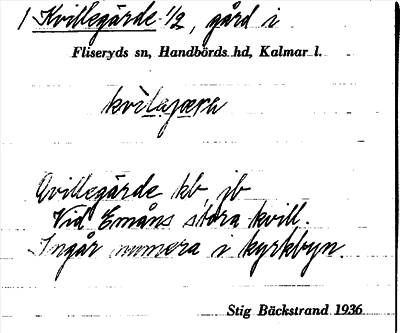 1 Kvillegärde 1/2, gård i
Fliseryds sn, Handbörds hd, Kalmar l.
Qvillegärde kb, jb
Vid Emåns stora kvill.
Ingår numera i kyrkbyn.
Stig Bäckstrand 1936